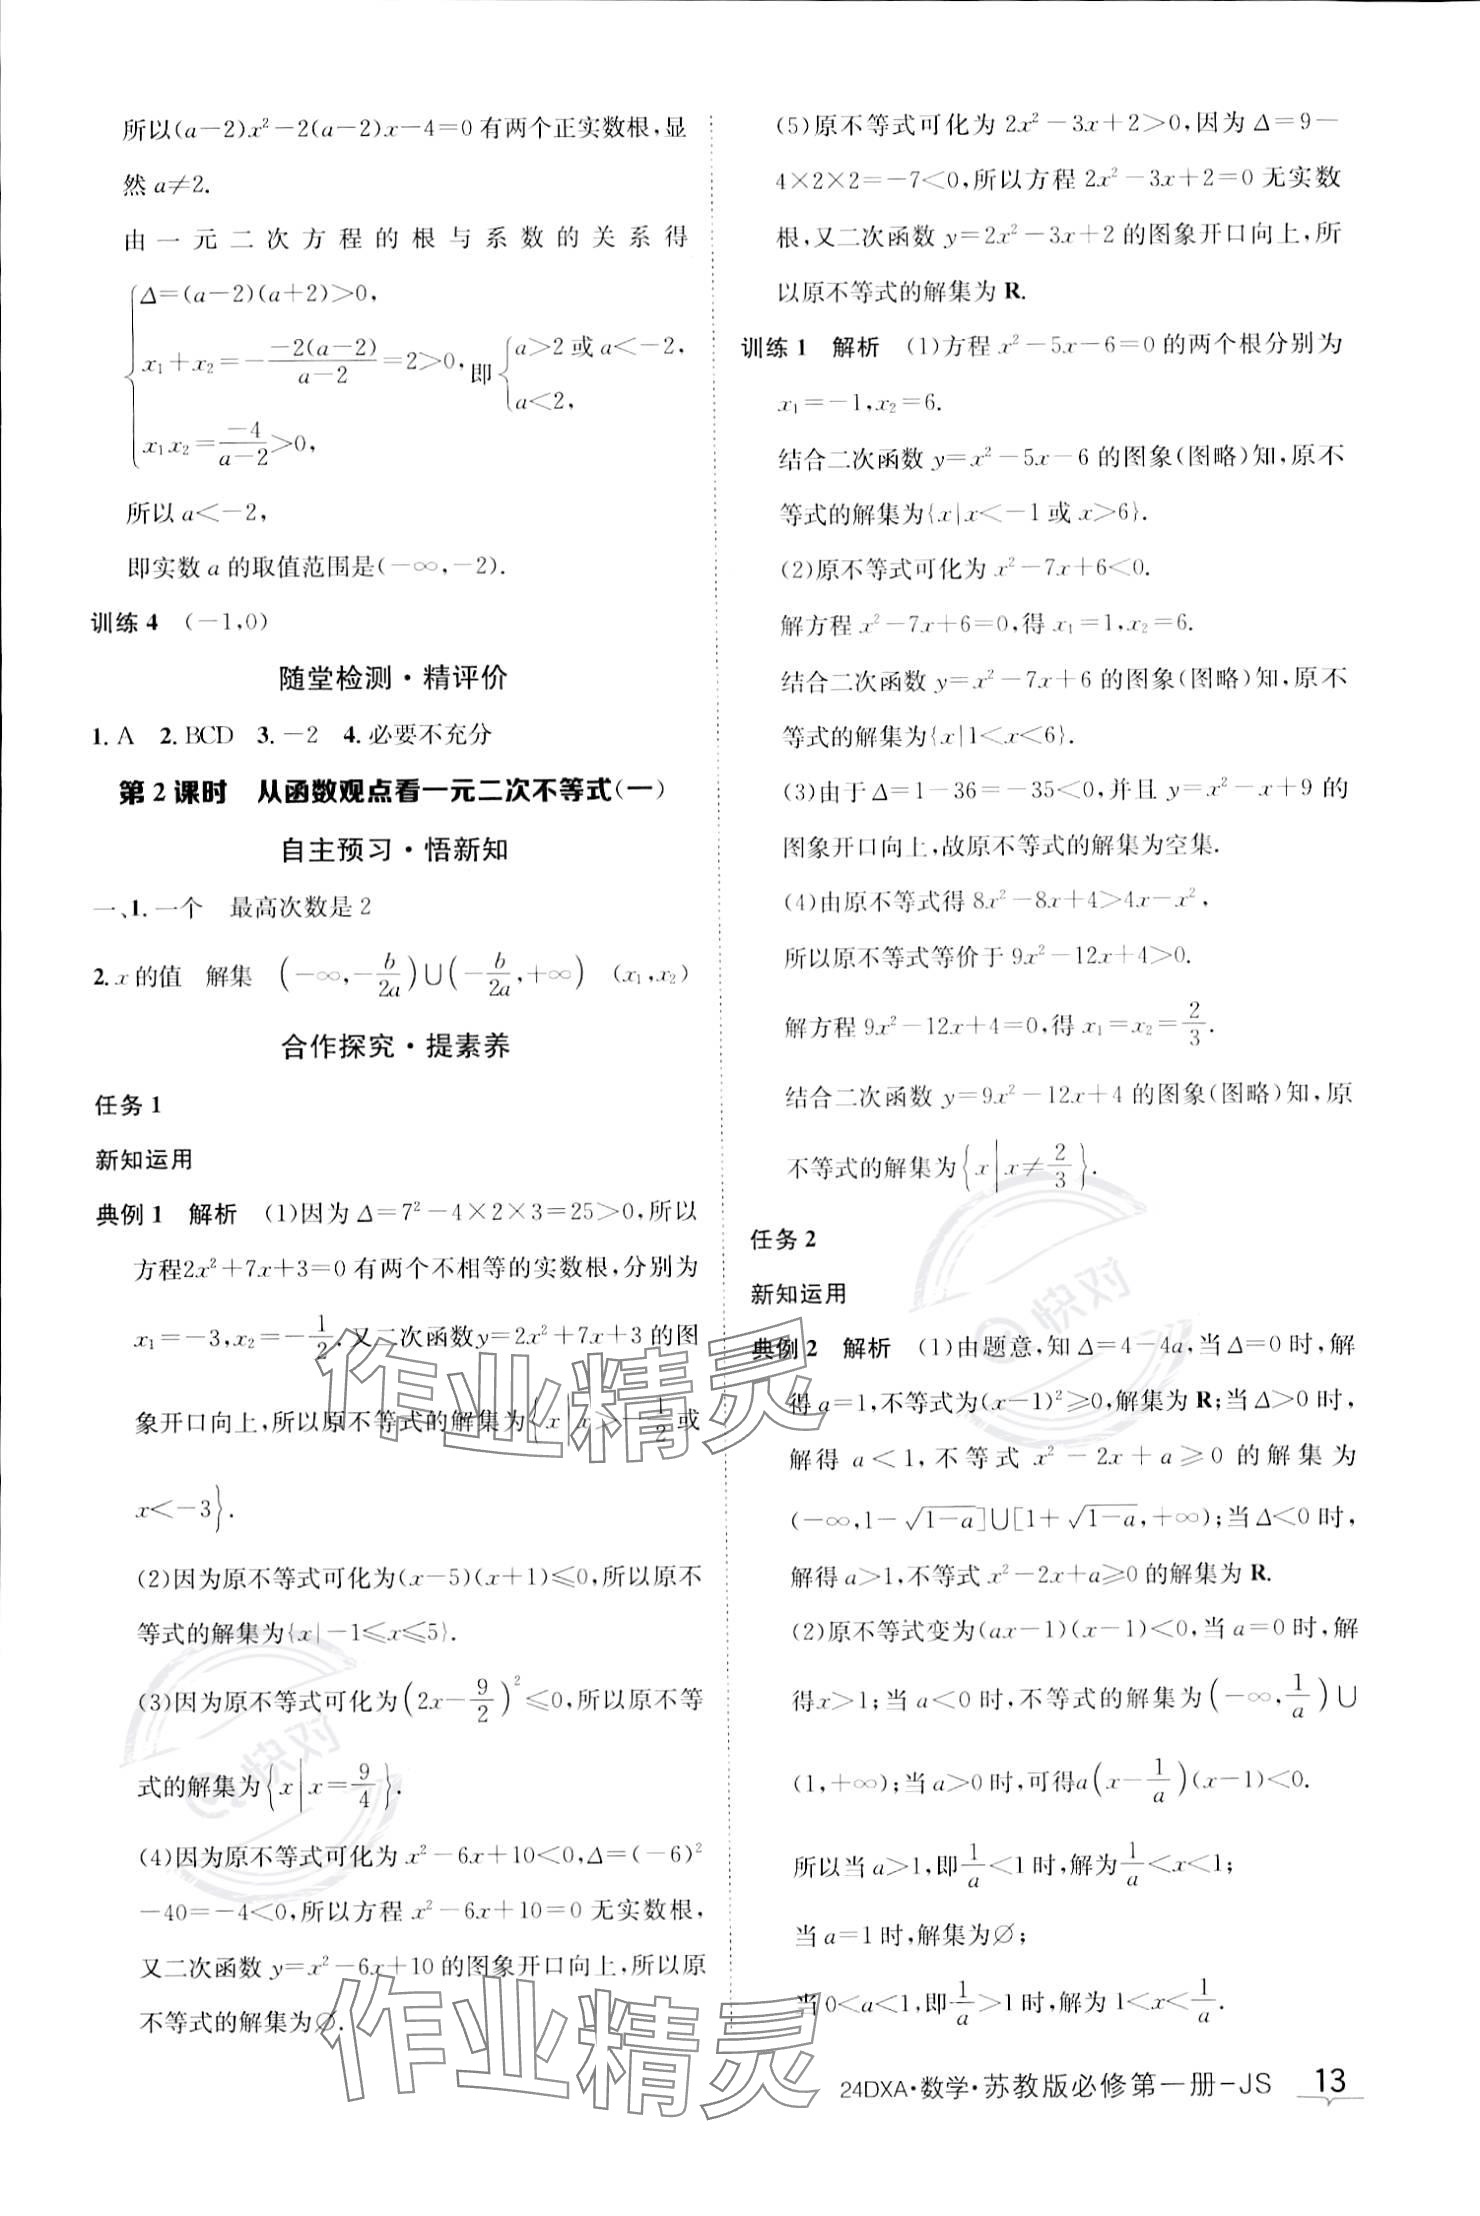 所以(a－2)x²－2(a－2)x－4＝0有两个正实数根,显
然a≠2.
由一元二次方程的根与系数的关系得
{Δ＝(a－2)(a＋2)＞0,
x₁＋x₂＝－\frac{－2(a－2)}{a－2}＝2＞0, 即{a＞2或a＜－2,
a＜2,
x₁x₂＝\frac{－4}{a－2}＞0,
所以a＜－2,
即实数a的取值范围是(－∞,－2).
训练4 (－1,0)
随堂检测·精评价
1.A 2.BCD 3.－2 4.必要不充分
第2课时 从函数观点看一元二次不等式(一)
自主预习·悟新知
一、1.一个 最高次数是2
2.x的值 解集 (－∞,－\frac{b}{2a})∪(－\frac{b}{2a},＋∞) (x₁,x₂)
合作探究·提素养
任务1
新知运用
典例1 解析 (1)因为Δ＝7²－4×2×3＝25＞0,所以
方程2x²＋7x＋3＝0有两个不相等的实数根,分别为
x₁＝－3,x₂＝－\frac{1}{2}.又二次函数y＝2x²＋7x＋3的图
象开口向上,所以原不等式的解集为{x|x＞－\frac{1}{2}或
x＜－3}.
(2)因为原不等式可化为(x－5)(x＋1)≤0,所以原不
等式的解集为{x|－1≤x≤5}.
(3)因为原不等式可化为(2x－\frac{9}{2})²≤0,所以原不等
式的解集为{x|x＝\frac{9}{4}}.
(4)因为原不等式可化为x²－6x＋10＜0,Δ＝(－6)²
－40＝－4＜0,所以方程x²－6x＋10＝0无实数根,
又二次函数y＝x²－6x＋10的图象开口向上,所以原
不等式的解集为∅.
(5)原不等式可化为2x²－3x＋2＞0,因为Δ＝9－
4×2×2＝－7＜0,所以方程2x²－3x＋2＝0无实数
根,又二次函数y＝2x²－3x＋2的图象开口向上,所
以原不等式的解集为R.
训练1 解析 (1)方程x²－5x－6＝0的两个根分别为
x₁＝－1,x₂＝6.
结合二次函数y＝x²－5x－6的图象(图略)知,原不
等式的解集为{x|x＜－1或x＞6}.
(2)原不等式可化为x²－7x＋6＜0.
解方程x²－7x＋6＝0,得x₁＝1,x₂＝6.
结合二次函数y＝x²－7x＋6的图象(图略)知,原不
等式的解集为{x|1＜x＜6}.
(3)由于Δ＝1－36＝－35＜0,并且y＝x²－x＋9的
图象开口向上,故原不等式的解集为空集.
(4)由原不等式得8x²－8x＋4＞4x－x²,
所以原不等式等价于9x²－12x＋4＞0.
解方程9x²－12x＋4＝0,得x₁＝x₂＝\frac{2}{3}.
结合二次函数y＝9x²－12x＋4的图象(图略)知,原
不等式的解集为{x|x≠\frac{2}{3}}.
任务2
新知运用
典例2 解析 (1)由题意,知Δ＝4－4a,当Δ＝0时,解
得a＝1,不等式为(x－1)²≥0,解集为R;当Δ＞0时,
解得a＜1,不等式x²－2x＋a≥0的解集为
(－∞,1－√(1－a)]∪[1＋√(1－a),＋∞);当Δ＜0时,
解得a＞1,不等式x²－2x＋a≥0的解集为R.
(2)原不等式变为(ax－1)(x－1)＜0,当a＝0时,解
得x＞1;当a＜0时,不等式的解集为(－∞,\frac{1}{a})∪
(1,＋∞);当a＞0时,可得a(x－\frac{1}{a})(x－1)＜0.
所以当a＞1,即\frac{1}{a}＜1时,解为\frac{1}{a}＜x＜1;
当a＝1时,解集为∅;
当0＜a＜1,即\frac{1}{a}＞1时,解为1＜x＜\frac{1}{a}.
24DXA·数学·苏教版必修第一册-JS 13
作业精灵
作业精灵
快对
快对